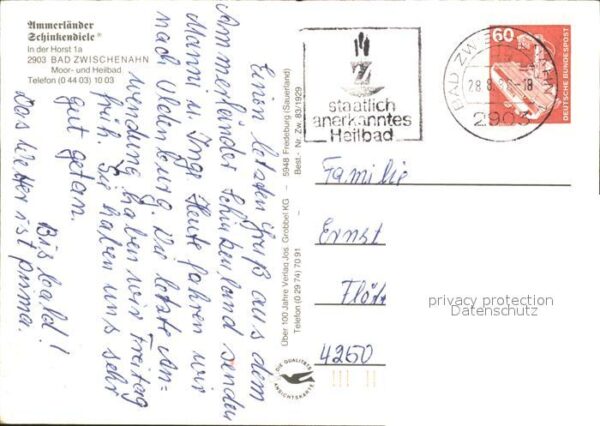 Ammerländer
Schinkendiele®
In der Horst 1a
2903 BAD ZWISCHENAHN
Moor- und Heilbad
Telefon (0 44 03) 10 03
Einen letzten Gruß aus dem
Ammerländer Schinkenland senden
Manni u. Inga. Heute fahren wir
nach Oldenburg. Die letzte An-
wendung haben wir Freitag
früh. Sie haben uns sehr
gut getan.
Bis bald!
Das Wetter ist prima.
Über 100 Jahre Verlag Jos. Grobbel KG - 5948 Fredeburg (Sauerland)
Telefon (0 29 74) 70 91
Best.- Nr. Zw. 83/1929
DIE QUALITÄTS
ANSICHTSKARTE
staatlich
anerkanntes
Heilbad
BAD ZWISCHENAHN 1
28.8. 18
2903
60
DEUTSCHE BUNDESPOST
Familie
Ernst
4250
privacy protection
Datenschutz